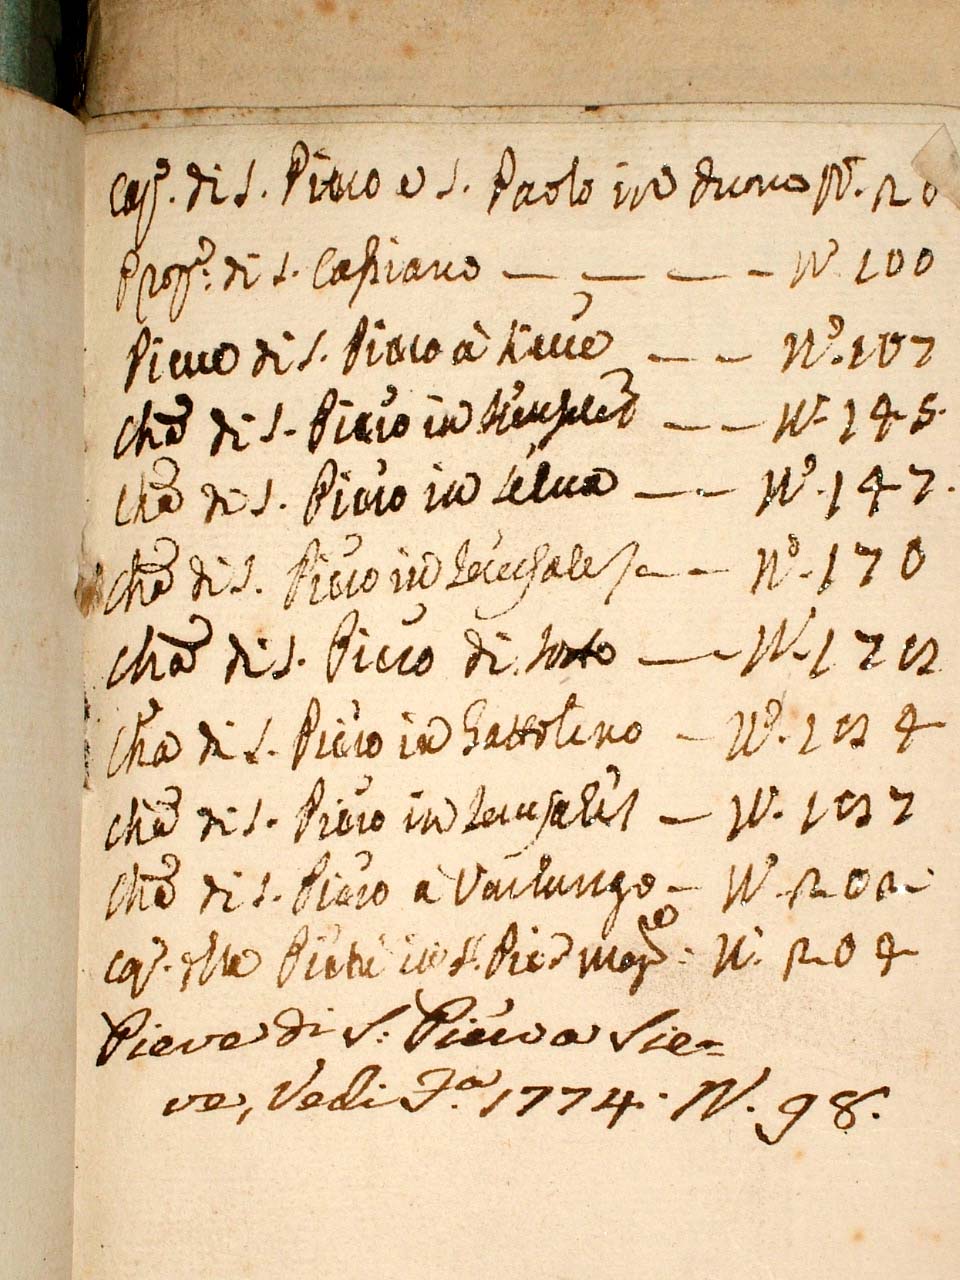 Cap.ª di S. Piero e S. Paolo in Duomo N.º 20
Prop.ª di S. Cassiano — — — — N.º 100
Pieve di S. Piero à Sieve — — N.º 107
Chª di S. Piero in — — N.º 145.
Chª di S. Piero in Selva — — N.º 147.
Chª di S. Piero in — — N.º 170
Chª di S. Piero di Sotto — N.º
Chª di S. Piero in Gattolino — N.º
Chª di S. Piero in — N.º
Chª di S. Piero à Varlungo — N.º 202.
Cap.ª in S. Pier Magg.re N.º 204
Pieve di S. Piero a Sie=
ve, Vedi Fª. 1774. N. 98.